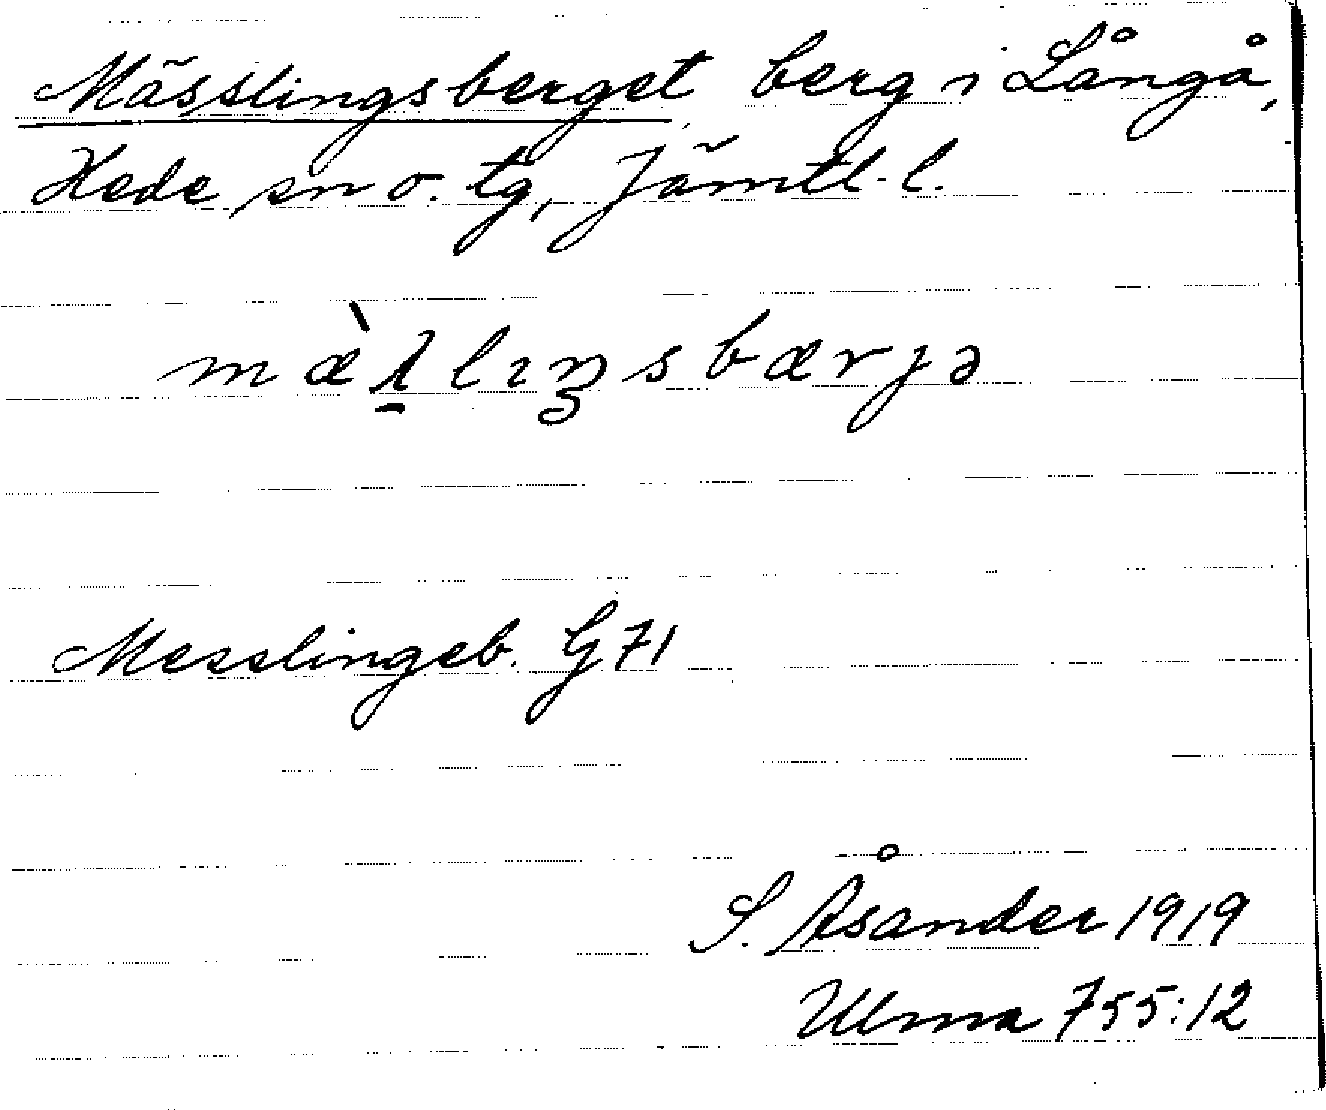 Mässlingsberget, berg i Långå,
Hede sn o. tg, Jämtl. l.
mæ̀λ̱lıŋsbærjə
Messlingeb. G71
S. Åsander 1919
Ulma 755:12